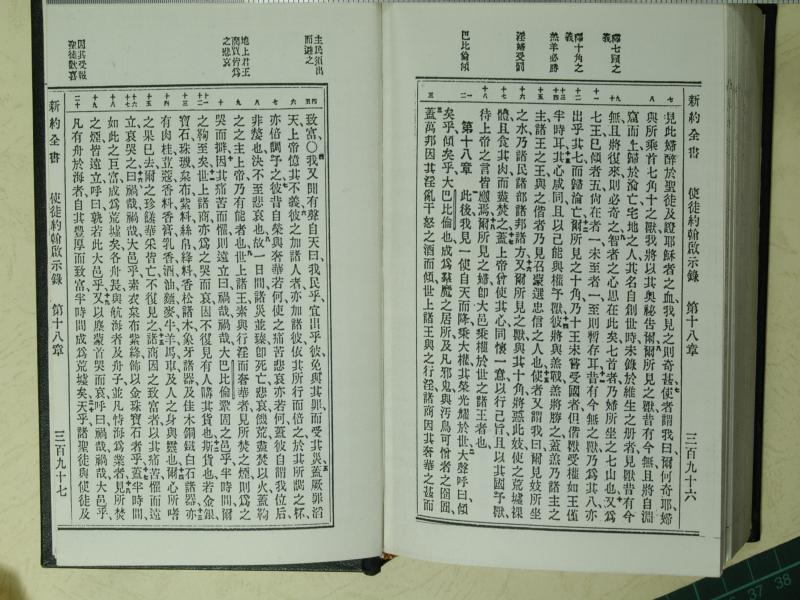 新約全書 使徒約翰啟示錄 第十八章 三百九十六
釋七頭之義
釋十角之義
羔羊必勝
淫婦受罰
巴比倫傾
見此婦醉於聖徒及證耶穌者之血、我見之則奇甚、使者謂我曰、爾何奇耶、婦
與所乘首七角十之獸、我將以其奧祕告爾、爾所見之獸、昔有今無、且將自淵
窟而上、歸於淪亡、宅地之人、其名自創世時未錄於維生之册者、見獸昔有今
無、且將復來、則必奇之、智者之心思在此矣、七首者、乃婦所坐之七山也、又為
七王、已傾者五、尚在者一、未至者一、至則暫存耳、昔有今無之獸、乃為其八、亦
出乎其七、而歸淪亡、爾所見之十角、乃十王未嘗受國者、但偕獸受權如王、僅
半時耳、其心咸同、且以己能與權予獸、將與羔戰、羔將勝之、蓋羔乃諸主之
主、諸王之王、與之偕者、乃見召蒙選忠信之人也、使者又謂我曰、爾見妓所坐
之水、乃諸民諸部諸邦諸方、又爾所見之獸、與其十角、將惡此妓、使之荒墟裸
體、且食其肉而盡焚之、蓋上帝曾使其心同懷一意、以行己旨、且以其國予獸、
待上帝之言皆應焉、爾所見之婦、即大邑、乘權於世之諸王者也、
第十八章 此後我見一使自天而降、乘大權、其榮光耀於世、大聲呼曰、傾
矣乎、傾矣乎、大巴比倫也、成為羣魔之居所、及凡邪鬼與污鳥可憎者之囹圄、
蓋萬邦因其淫亂干怒之酒而傾、世上諸王與之行淫、諸商因其奢華之甚而
主民須出而避之
地上君王商賈皆為之悲哀
因其受報聖徒歡喜
致富、○我又聞有聲自天曰、我民乎、宜出乎彼、免與其罪而受其災、蓋厥罪滔
天、上帝憶其不義、彼之加諸人者、亦加諸彼、依其所行而倍之、於其所調之杯、
亦倍調予之、彼昔自榮與奢華若何、使之痛苦悲哀亦若何、蓋彼自謂我位后、
非嫠也、決不至悲哀也、故一日間諸災並臻、即死亡悲哀饑荒、盡焚以火、蓋鞫
之之主上帝、乃有能者也、世上諸王、素與行淫而奢華者、見所焚之煙、則為之
哭而擗、因其痛苦而懼、則遠立曰、禍哉禍哉、大巴比倫鞏固之邑乎、半時間爾
之鞫至矣、世上諸商亦為之哭而哀、因不復見有人購其貨也、斯貨也、若金銀
寶石珠璣、枲布紫料絲帛絳料、香松諸木、象牙諸器、及佳木銅鐵白石諸器、亦
有肉桂荳蔻香料香膏乳香酒油麵麥牛羊馬車、及人之身與靈也、爾心所嗜
之果已去爾、之珍饈華采皆亡、不復見之、諸商因之致富者、以其痛苦懼而遠
立哀哭之曰、禍哉禍哉、大邑乎、素衣枲布紫絳、飾以金珠寶石者乎、蓋半時間、
如此之巨富、成為荒墟矣、各舟長與航海者、及舟子、並凡恃海為業者、見所焚
之煙、皆遠立、呼曰、孰若此大邑乎、又以塵蒙首、哭而哀、呼曰、禍哉禍哉、大邑乎、
凡有舟於海者、自其豐厚而致富、半時間成為荒墟矣、天乎、諸聖徒與使徒及
新約全書 使徒約翰啟示錄 第十八章 三百九十七
37 38